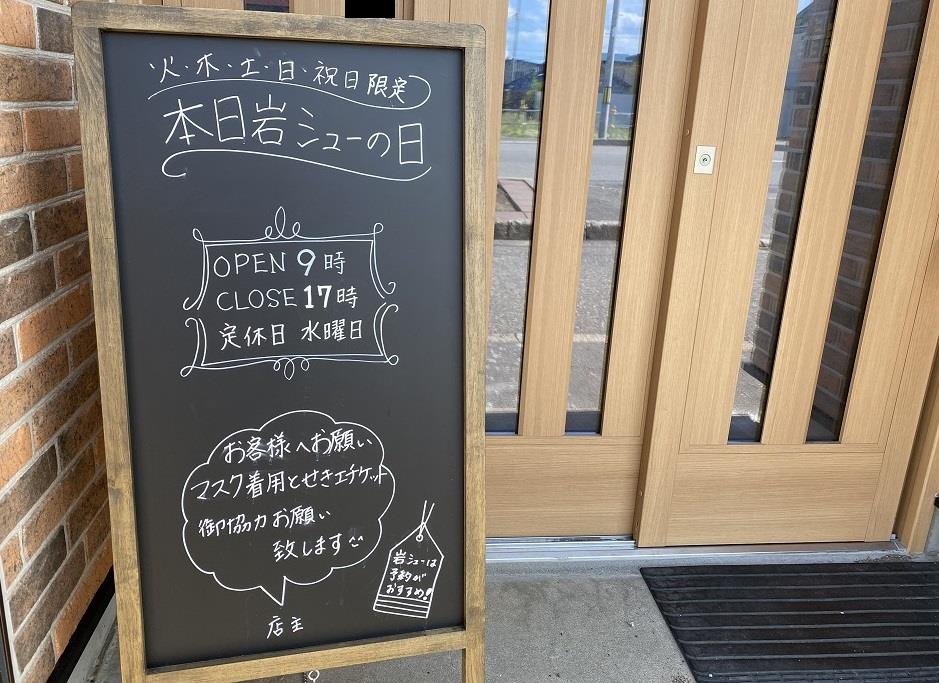 火・木・土・日・祝日限定
本日岩シューの日
OPEN 9時
CLOSE 17時
定休日 水曜日
お客様へお願い
マスク着用とせきエチケット
御協力お願い
致します
店主
岩シューは
予約が
おすすめ!